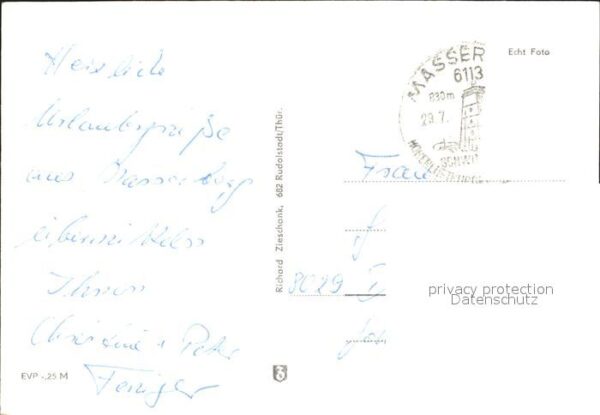 Herzliche
Urlaubsgrüße
aus Masserberg
übermitteln
Ihnen
Christine + Peter
EVP -,25 M
Richard Zieschank, 682 Rudolstadt/Thür.
Echt Foto
MASSER
6113
830m
29.7.
SCHWI
HÖHENLUFTKUR
Frau
8029
privacy protection
Datenschutz